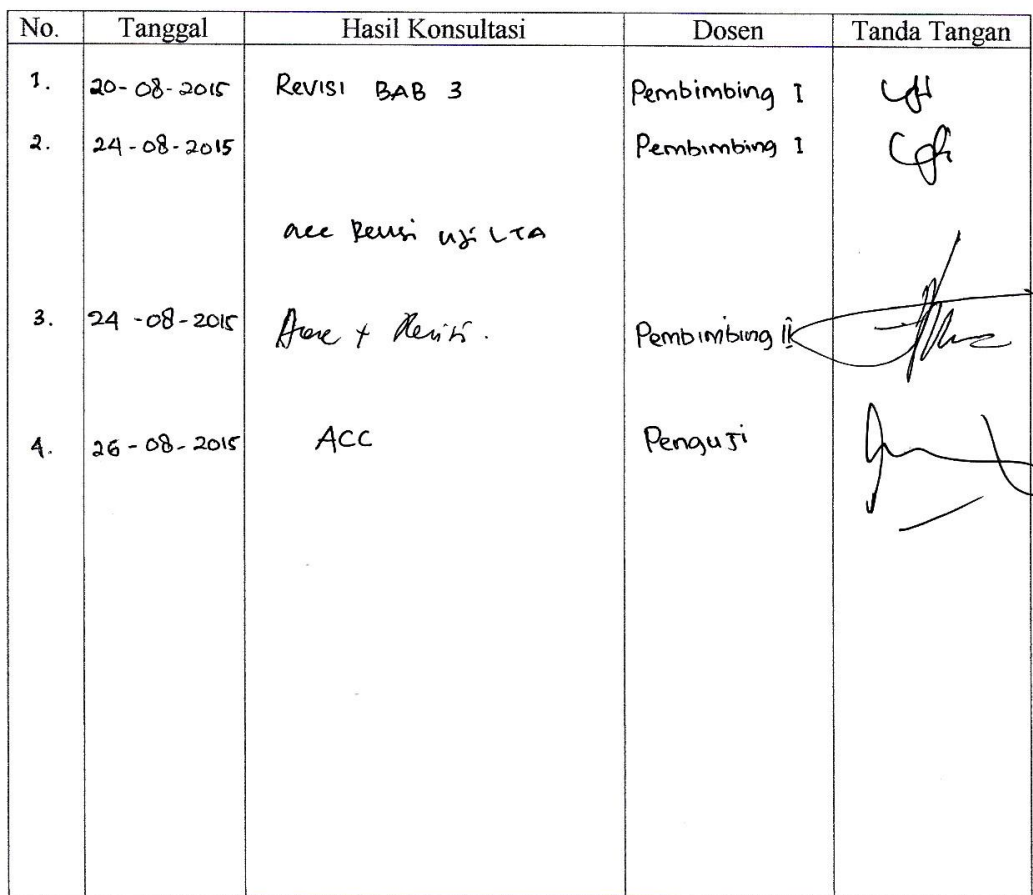 No. Tanggal Hasil Konsultasi Dosen Tanda Tangan
1. 20-08-2015 Revisi BAB 3 Pembimbing I
2. 24-08-2015 Pembimbing I
acc Revisi uji LTA
3. 24-08-2015 Acc + Revisi. Pembimbing II
4. 26-08-2015 ACC Penguji